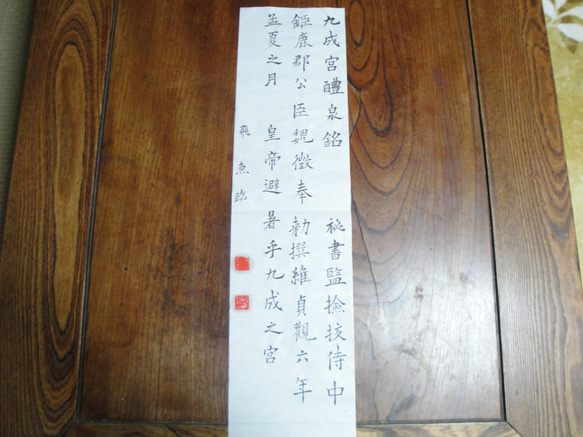 九成宮醴泉銘 祕書監撿挍侍中
鉅鹿郡公臣魏徵奉 勑撰維貞觀六年
孟夏之月 皇帝避暑乎九成之宮
飛魚臨